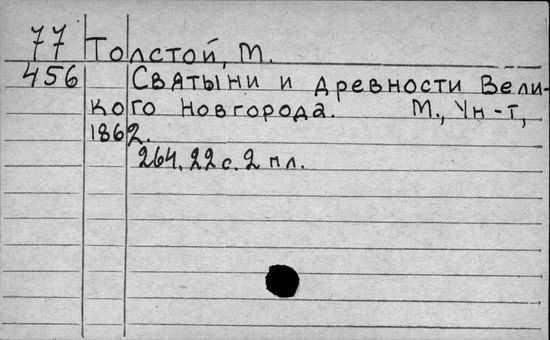 77 Толстой, М.
456 Святыни и древности Вели-
кого Новгорода. М., Ун-т,
1862.
264.22 с. 2 пл.